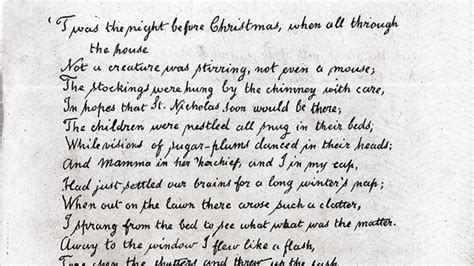 'Twas the night before Christmas, when all through
the house
Not a creature was stirring, not even a mouse;
The stockings were hung by the chimney with care,
In hopes that St. Nicholas soon would be there;
The children were nestled all snug in their beds;
While visions of sugar-plums danced in their heads;
And Mamma in her 'kerchief, and I in my cap,
Had just settled our brains for a long winter's nap;
When out on the lawn there arose such a clatter,
I sprang from the bed to see what was the matter.
Away to the window I flew like a flash,
Tore open the shutters and threw up the sash